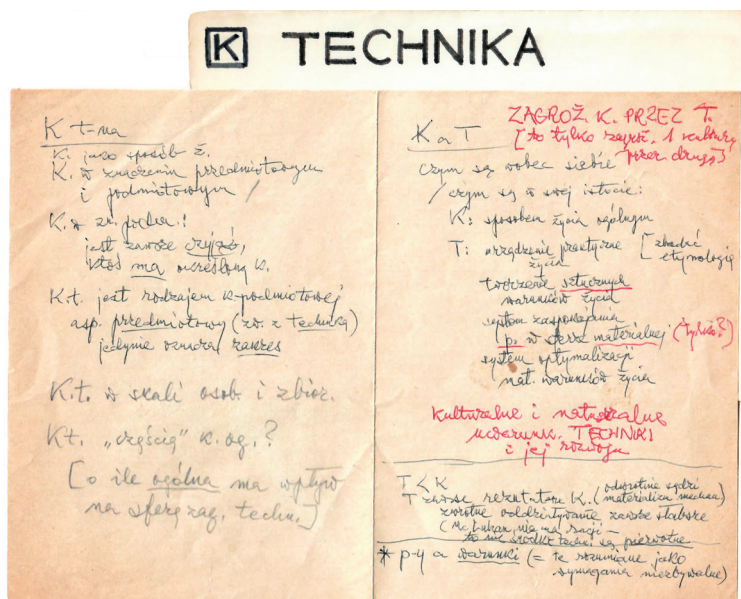 K TECHNIKA
K t-na
K. jako sposób ż.
K. w znaczeniu przedmiotowym
i podmiotowym /
K. w zn. podm.:
jest zawsze czyjąś,
ktoś ma określoną K.
K.t. jest rodzajem K-podmiotowej
asp. przedmiotowy (zw. z techniką)
jedynie oznacza zakres
K.t. w skali osob. i zbior.
Kt. „częścią” K. og.?
[o ile ogólna ma wpływ
na sferę zag. techn.]
ZAGROŻ. K. PRZEZ T.
[to tylko zagroż. 1 kultury
przez drugą]
K a T
czym są wobec siebie
/ czym są w swej istocie:
K: sposobem życia ogólnym
T: urządzenie praktyczne życia
[zbadać etymologię
tworzenie sztucznych
warunków życia
system zaspokojenia
p. w sferze materialnej (tylko?)
system optymalizacji
mat. warunków życia
kulturalne i naturalne
uwarunk. TECHNIKI
i jej rozwoju
T < K
T zawsze rezultatem K. (odwrotnie sądzi
materializm mechan)
zwrotne oddziaływanie zawsze słabsze
(Mc Luhan nie ma racji –
to nie środki techn. są pierwotne
* p-y a warunki (= te rozumiane jako
wymagania niezbywalne)